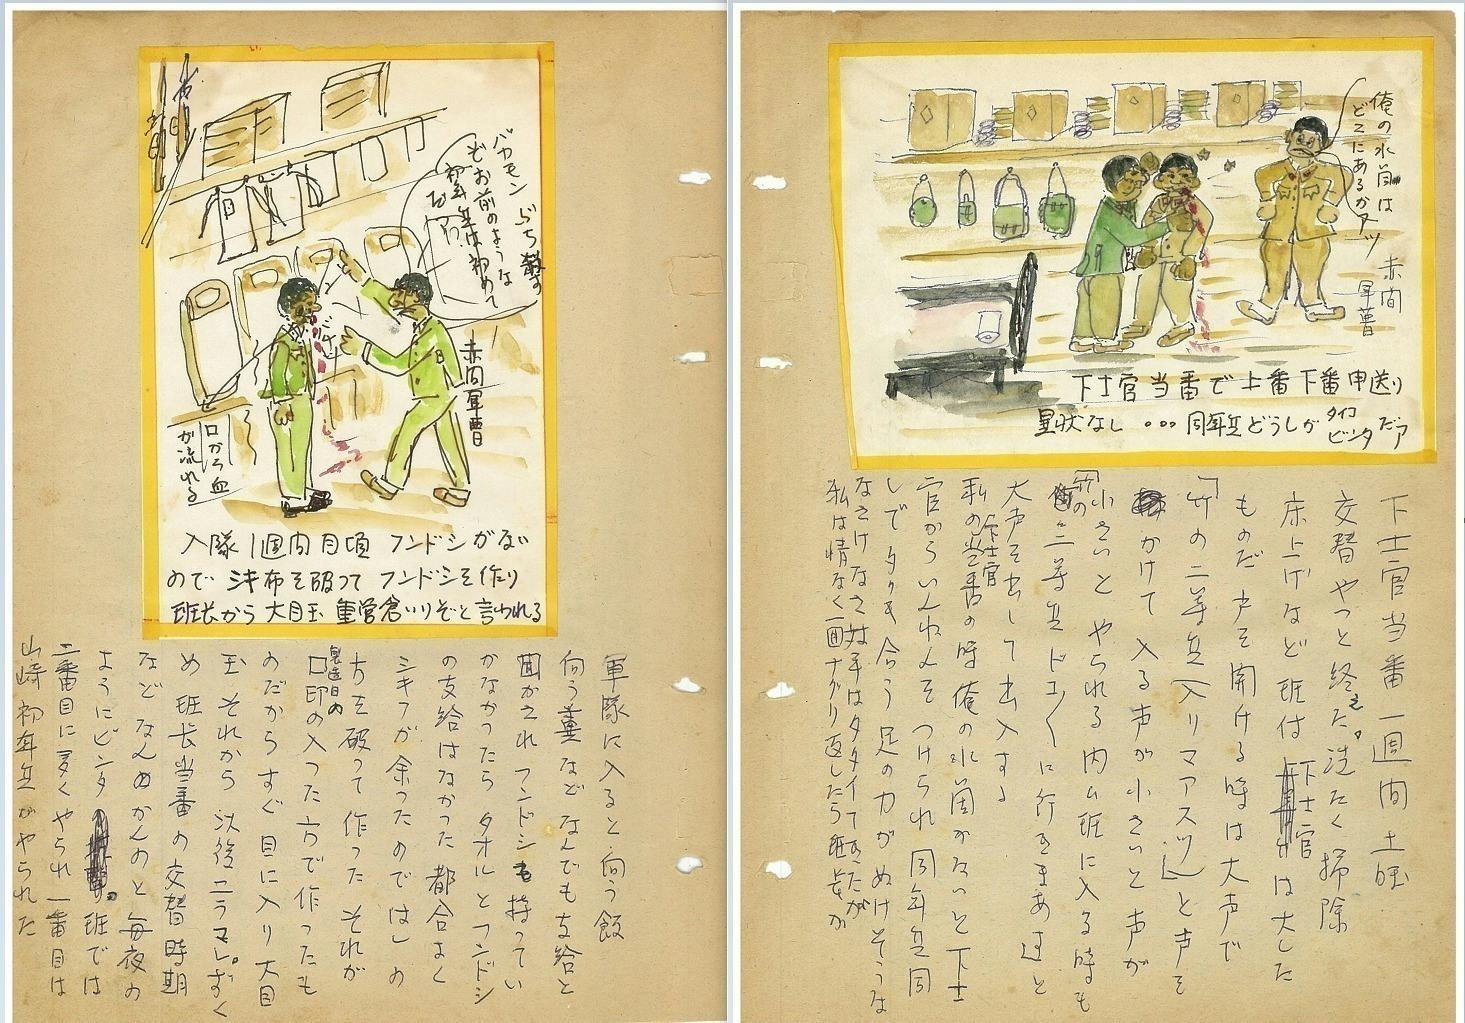 バカモン ぶち殺す
ぞお前のような
初年兵は初めて
だ
赤間軍曹
口から血
が流れる
入隊1週間目頃 フンドシがない
ので シキ布を破って フンドシを作り
班長から大目玉 重営倉いりぞと言われる
軍隊に入ると何う飯
何う糞などなんでも支給と
聞かされフンドシも持ってい
かなかったらタオルとフンドシ
の支給はなかった都合よく
シキフが余ったのではしの
方を破って作ったそれが
製造日の
口印の入った方で作ったも
のだからすぐ目に入り大目
玉それから以後ニラマレぱなし
め班長当番の交替時期
などなんのかんのと毎夜の
ようにビンタ 班では
二番目に多くやられ一番目は
山崎初年兵がやられた
俺の水筒は
どこにあるかアッ
赤間
軍曹
下士官当番で上番下番申送り
異状なし…同年兵どうしが タイコビンタだア
下士官当番一週間土曜
交替やっと終えた。洗たく掃除
床上げなど班付下士官は大した
ものだ戸を開ける時は大声で
「竹の二等兵入リマアスッ」と声を
かけて入る声が小さいと声が
小さいとやられる内ム班に入る時も
「竹の二等兵ドコ〱に行きまあすと
大声を出して出入する
私の下士官当番の時俺の水筒がないと下士
官からいんねんをつけられ同年兵同
しでタタキ合う足の力がぬけそうな
なさけなさ対手はタタイてきたが
私は情なく一回ナグリ返したら班長が